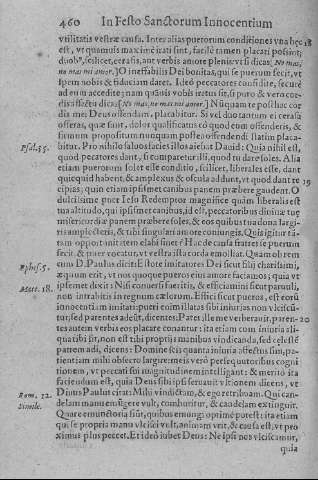 460 In Festo Sanctorum Innocentium
vtilitatis vestræ causa. Inter alias puerorum conditiones vna hęc 18
est, vt quamuis maximè irati sint, facilè tamen placari possint;
duob', scilicet, ceraſis, aut verbis amore plenis: vt si dicas, No mas,
no mas mi amor.] O ineffabilis Dei bonitas, qui se puerum fecit, vt
spem nobis & fiduciam daret. Ideò peccator es confidite, securè
ad eum accedite; nam quãuis vobis iratus sit, si puro & vero cor-
dis affectu dicas [No mas, no mas mi amor.] Nũquam te posthac cor
dis mei Deus offendam, placabitur. Si vel duo tantum ei cerasa
offeras, quæ sint, dolor qualiscumq̃ eò quod eum offenderis, &
firmum propositum nunquam posteà offendendi statim placa-
Psal. 55. bitur. Pro nihilo saluos facies illos aiebat Dauid: Quia nihil est,
quod pecatores dant, si comparetur illi, quod tu dare soles. Alia
etiam puerorum solet esse conditio, scilicet, liberales esse, dant
quitequid habent, & amplexus & oscula addunt, vt quod dant re 19
cipias; quin etiam ipsismet canibus panem præbere gaudent. O
dulcissime puer Iesu Redemptor magnificè quàm liberalis est
tua altitudo, qui ipsismet canibus, id est, peccatoribus diuinæ tuę
misericordiæ panem præbere soles, & eos quibus tua dona largi-
ris amplecteris, & tibi singulari amore coniungis. Quis igitur tã-
tam opportunitatem elabi sinet? Hac de causa fratres se puerum
fecit, & puer vocatur, vt vestra ista corda emolliat. Quam ob rem
Ephes. 5. cum D. Paulus dicit: Estote imitatores Dei sicut filij charissimi,
æquum erit, vt nos quoque pueros eius amore faciamus; quia vt
Matt. 18. ipsemet dixit: Nisi conuersi fueritis, & efficiamini sicut paruuli,
non intrabitis in regnum cælorum. Efficisicut pueros, est eorũ
innocentiam imitari: pueri enim illatas sibi iniurias non vlciscũ-
tur, sed parentes adeũt, dicentes: Pater ille me verberauit, paren- 20
tes autem verbis eos placare conantur: ita etiam cum iniuria ali-
qua tibi sit, non est tibi proprijs manibus vindicanda, sed celestẽ
patrem adi, dicens: Domine sic quanta iniuria affectus sum, pa-
tientiam mihi obsecro largire: meis verò persequutoribus cogni
tionem, vt peccati sui magnitudinem intelligant: & meritò ita
faciendum est, quia Deus sibi ipsi seruauit vltionem dicens, vt
Rom. 12. Diuus Paulus citat: Mihi vindictam, & ego retribuam. Qui can-
Simile. delam manu emũgere vult, comburitur, & candelam extinguit.
Quare emunctoria sũt, quibus emungi optimè potest: ita etiam
qui se propria manu vlcisci vult, animam vrit, & causa est, vt pro
ximus plus peccet. Et ideò iubet Deus: Ne ipsi nos vlciscamur,
quia